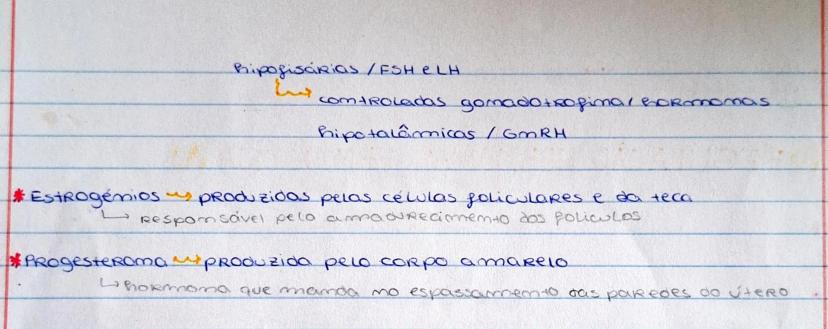 hipofisárias / FSH e LH
↳ controladas gonadotrofina / hormonas
hipotalâmicas / GnRH
* Estrogénios → produzidos pelas células foliculares e da teca
↳ responsável pelo amadurecimento dos foliculos
* Progesterona → produzida pelo corpo amarelo
↳ hormona que manda no espassamento das paredes do útero